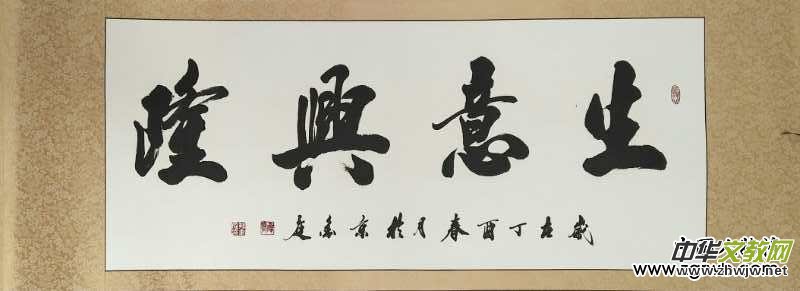 生意興隆
歲在丁酉春月於京
中华文教网
www.zhwjw.net